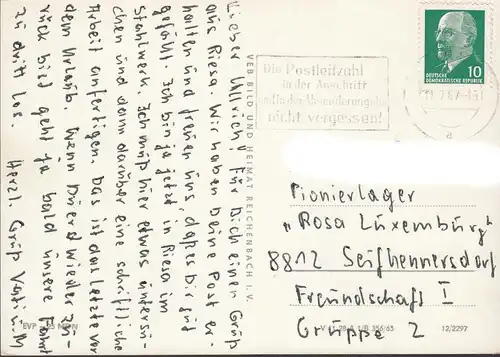 Lieber Ullrich! Für Dich einen Gruß
aus Riesa. Wir haben Deine Post er-
halten und freuen uns, daß es Dir gut
gefällt. Ich bin ja jetzt in Riesa im
Stahlwerk. Ich muß hier etwas untersu-
chen und dann darüber eine schriftliche
Arbeit anfertigen. Das ist das letzte vor
dem Urlaub. Wenn Du erst wieder zu-
rück bist geht ja bald unsere Fahrt
zu dritt los. Herzl. Gruß Vati u. M
VEB BILD UND HEIMAT REICHENBACH I. V.
Die Postleitzahl
in der Anschrift
und in der Absenderangabe
nicht vergessen!
10
DEUTSCHE
DEMOKRATISCHE REPUBLIK
a
Pionierlager
„Rosa Luxemburg“
8812 Seifhennersdorf
Freundschaft I
Gruppe 2
12/2297